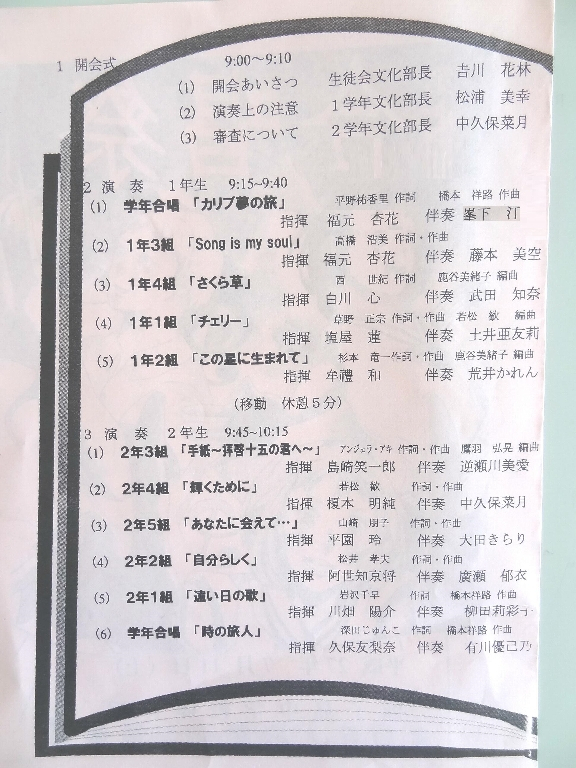 1 開会式 9:00～9:10
(1) 開会あいさつ 生徒会文化部長 吉川 花林
(2) 演奏上の注意 1学年文化部長 松浦 美幸
(3) 審査について 2学年文化部長 中久保菜月
2 演 奏 1年生 9:15～9:40
(1) 学年合唱 「カリブ夢の旅」 平野祐香里 作詞 橋本 祥路 作曲
指揮 福元 杏花 伴奏 峯下 汀
(2) 1年3組 「Song is my soul」 高橋 浩美 作詞・作曲
指揮 福元 杏花 伴奏 藤本 美空
(3) 1年4組 「さくら草」 西 世紀 作詞 鹿谷美緒子 編曲
指揮 白川 心 伴奏 武田 知奈
(4) 1年1組 「チェリー」 草野 正宗 作詞・作曲 若松 歓 編曲
指揮 塩屋 蓮 伴奏 土井亜友莉
(5) 1年2組 「この星に生まれて」 杉本 竜一作詞・作曲 鹿谷美緒子 編曲
指揮 牟禮 和 伴奏 荒井かれん
(移動 休憩5分)
3 演 奏 2年生 9:45～10:15
(1) 2年3組 「手紙～拝啓十五の君へ～」 アンジェラ・アキ 作詞・作曲 鷹羽 弘晃 編曲
指揮 島崎笑一郎 伴奏 逆瀬川美愛
(2) 2年4組 「輝くために」 若松 歓 作詞・作曲
指揮 榎本 明純 伴奏 中久保菜月
(3) 2年5組 「あなたに会えて…」 山崎 朋子 作詞・作曲
指揮 平園 玲 伴奏 大田きらり
(4) 2年2組 「自分らしく」 松井 孝夫 作詞・作曲
指揮 阿世知京将 伴奏 廣瀬 郁衣
(5) 2年1組 「遠い日の歌」 岩沢千早 作詞 橋本祥路 作曲
指揮 川畑 陽介 伴奏 柳田莉彩子
(6) 学年合唱 「時の旅人」 深田じゅんこ 作詞 橋本祥路 作曲
指揮 久保友梨奈 伴奏 有川優己乃